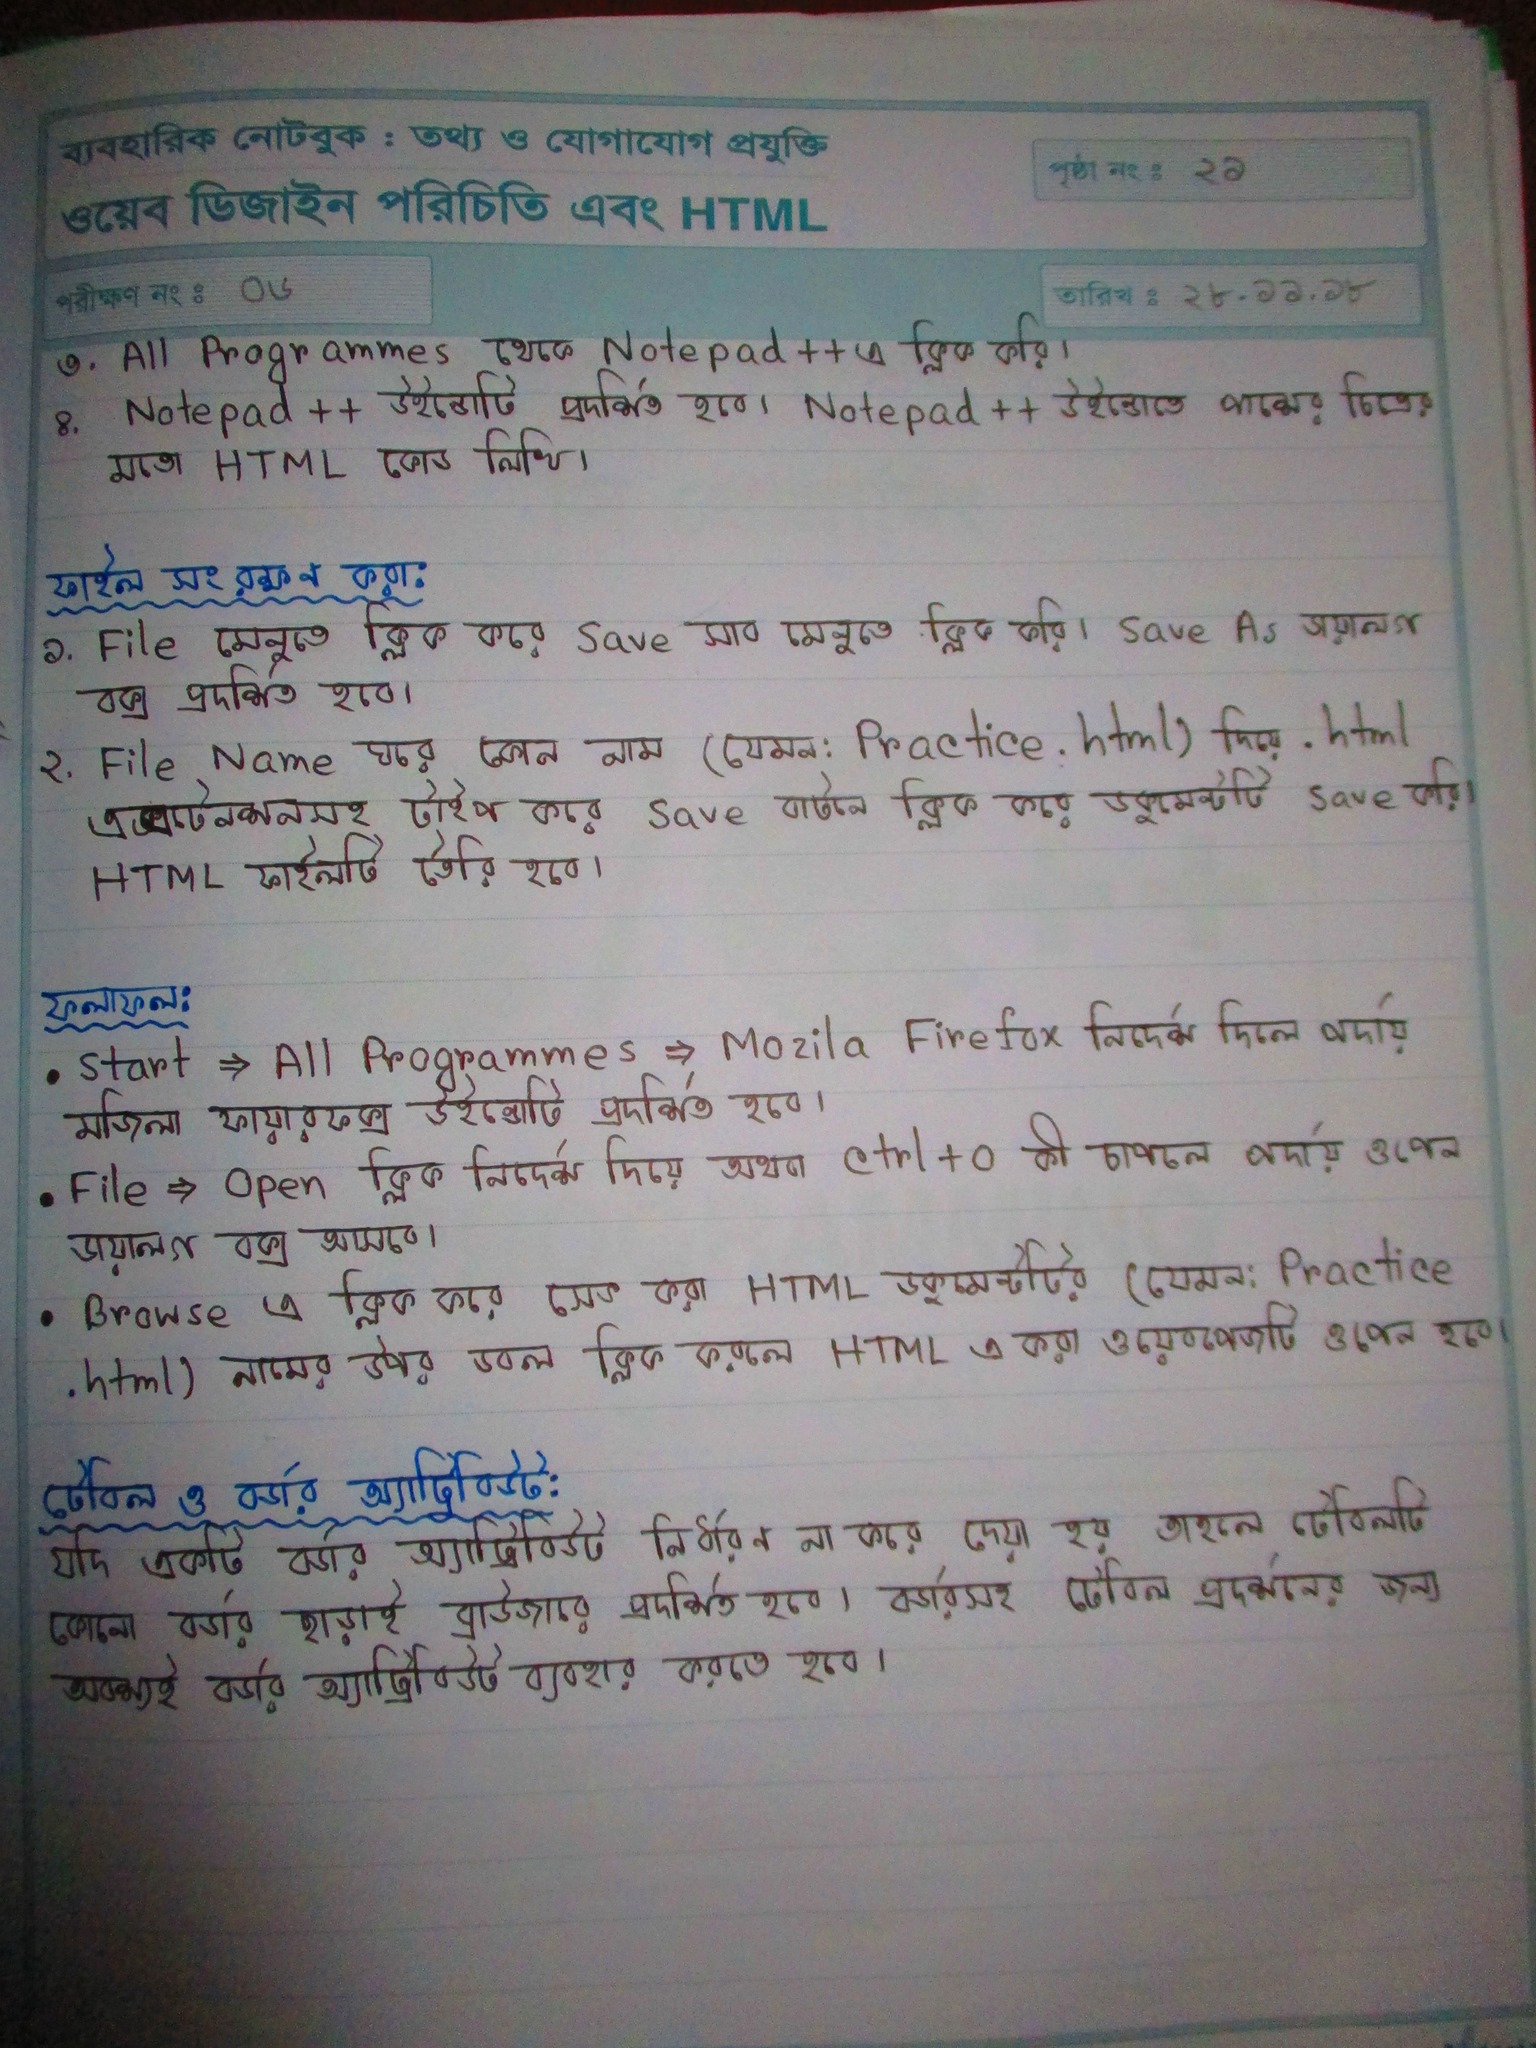 ব্যবহারিক নোটবুক : তথ্য ও যোগাযোগ প্রযুক্তি
ওয়েব ডিজাইন পরিচিতি এবং HTML
পৃষ্ঠা নং : ২১
পরীক্ষণ নং : ০৬
তারিখ : ২৮.১১.১৮
৩. All Programmes থেকে Notepad++ এ ক্লিক করি।
৪. Notepad ++ উইন্ডোটি প্রদর্শিত হবে। Notepad ++ উইন্ডোতে পাশের চিত্রের
মতো HTML কোড লিখি।
ফাইল সংরক্ষণ করা:
১. File মেনুতে ক্লিক করে Save সাব মেনুতে ক্লিক করি। Save As ডায়ালগ
বক্স প্রদর্শিত হবে।
২. File Name ঘরে কোন নাম (যেমন: Practice.html) দিয়ে .html
এক্সটেনশনসহ টাইপ করে Save বাটনে ক্লিক করে ডকুমেন্টটি Save করি।
HTML ফাইলটি তৈরি হবে।
ফলাফল:
• Start ⇒ All Programmes ⇒ Mozila Firefox নির্দেশ দিলে পর্দায়
মজিলা ফায়ারফক্স উইন্ডোটি প্রদর্শিত হবে।
• File ⇒ Open ক্লিক নির্দেশ দিয়ে অথবা Ctrl+O কী চাপলে পর্দায় ওপেন
ডায়ালগ বক্স আসবে।
• Browse এ ক্লিক করে সেভ করা HTML ডকুমেন্টটির (যেমন: Practice
.html) নামের উপর ডবল ক্লিক করলে HTML এ করা ওয়েবপেজটি ওপেন হবে।
টেবিল ও বর্ডার অ্যাট্রিবিউট:
যদি একটি বর্ডার অ্যাট্রিবিউট নির্ধারণ না করে দেয়া হয় তাহলে টেবিলটি
কোনো বর্ডার ছাড়াই ব্রাউজারে প্রদর্শিত হবে। বর্ডারসহ টেবিল প্রদর্শনের জন্য
অবশ্যই বর্ডার অ্যাট্রিবিউট ব্যবহার করতে হবে।